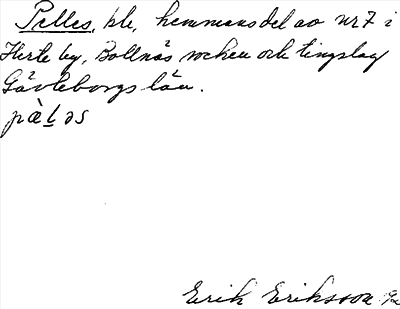 Pelles, ble, hemmansdel av nr 7 i
Herte by, Bollnäs socken och tingslag
Gävleborgs län.
pæ̀ḷəs
Erik Eriksson